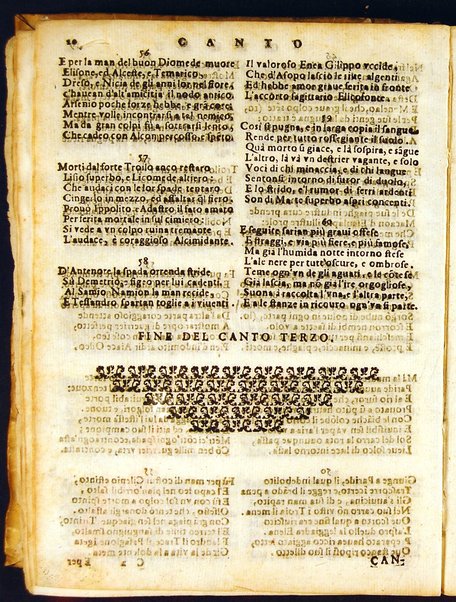 20 CANTO
56
E per la man del buon Diomede muore
Elisone, ed Alceste, e Temarico,
Dreso, e Nicia de gli anni lor nel fiore
Ch'auean d'all'amicitia il nodo antico.
Arsenio poche forze hebbe, e gran core
Mentre volle incontrarsi al tel nemico,
Ma da gran colpi fù forzarsi lento,
Che cadeo con Alcon percosso, e spento
57
Morti dal forte Troilo anco restaro
Lisio superbo, e Licomede altiero:
Che audaci con le lor spade tentaro
Cinger lo in mezzo, ed assaltar il fiero.
Prouò Ippolito, e Adastro il fato amaro
Per ferita mortale in sul cimiero:
Si vede a vn colpo ruina tremante
L'audace, e coraggioso Alcimidante.
58
D'Antenor e la spada orrenda stride
Sù Demetrio, e figro per lui cadenti.
Al Samio Namion la man recide,
E Tessandro spartan toglie a i viuenti.
Il valoroso Enea Gilippo vccide,
Che d'Asopo lasciò le riue algenti
Ed hebbe amor giaue ferita in fronte
L'accorto sagittario Elicofonte.
59
Così si pugna, e in larga copia il sangue
Rende per tutto rosseggiante il suolo.
Quà morto si giace, e là sospira, e langue
L'altro, là và vn destrier vagante, e solo
Voci di chi minaccia, e di chi langue
Sentonsi intorno di furor di duolo,
E lo strido, e'l rumor de ferri ardenti
Son da Marte superbo aspri concenti.
60
E seguite sarian più graui offese
E straggi, e via più fiere, e più famose,
Ma già l'humida notte intorno stese
L'ale nere per tutto oscure, e ombrose.
Teme ogn'vn de gli aguati, e le cotese
Già lascia, ma nò già l'ire orgogliose,
Suona a raccolta l'vna, e l'altra parte,
E alle stanze in ricouro ogn'vn si parte.
FINE DEL CANTO TERZO.
CAN-